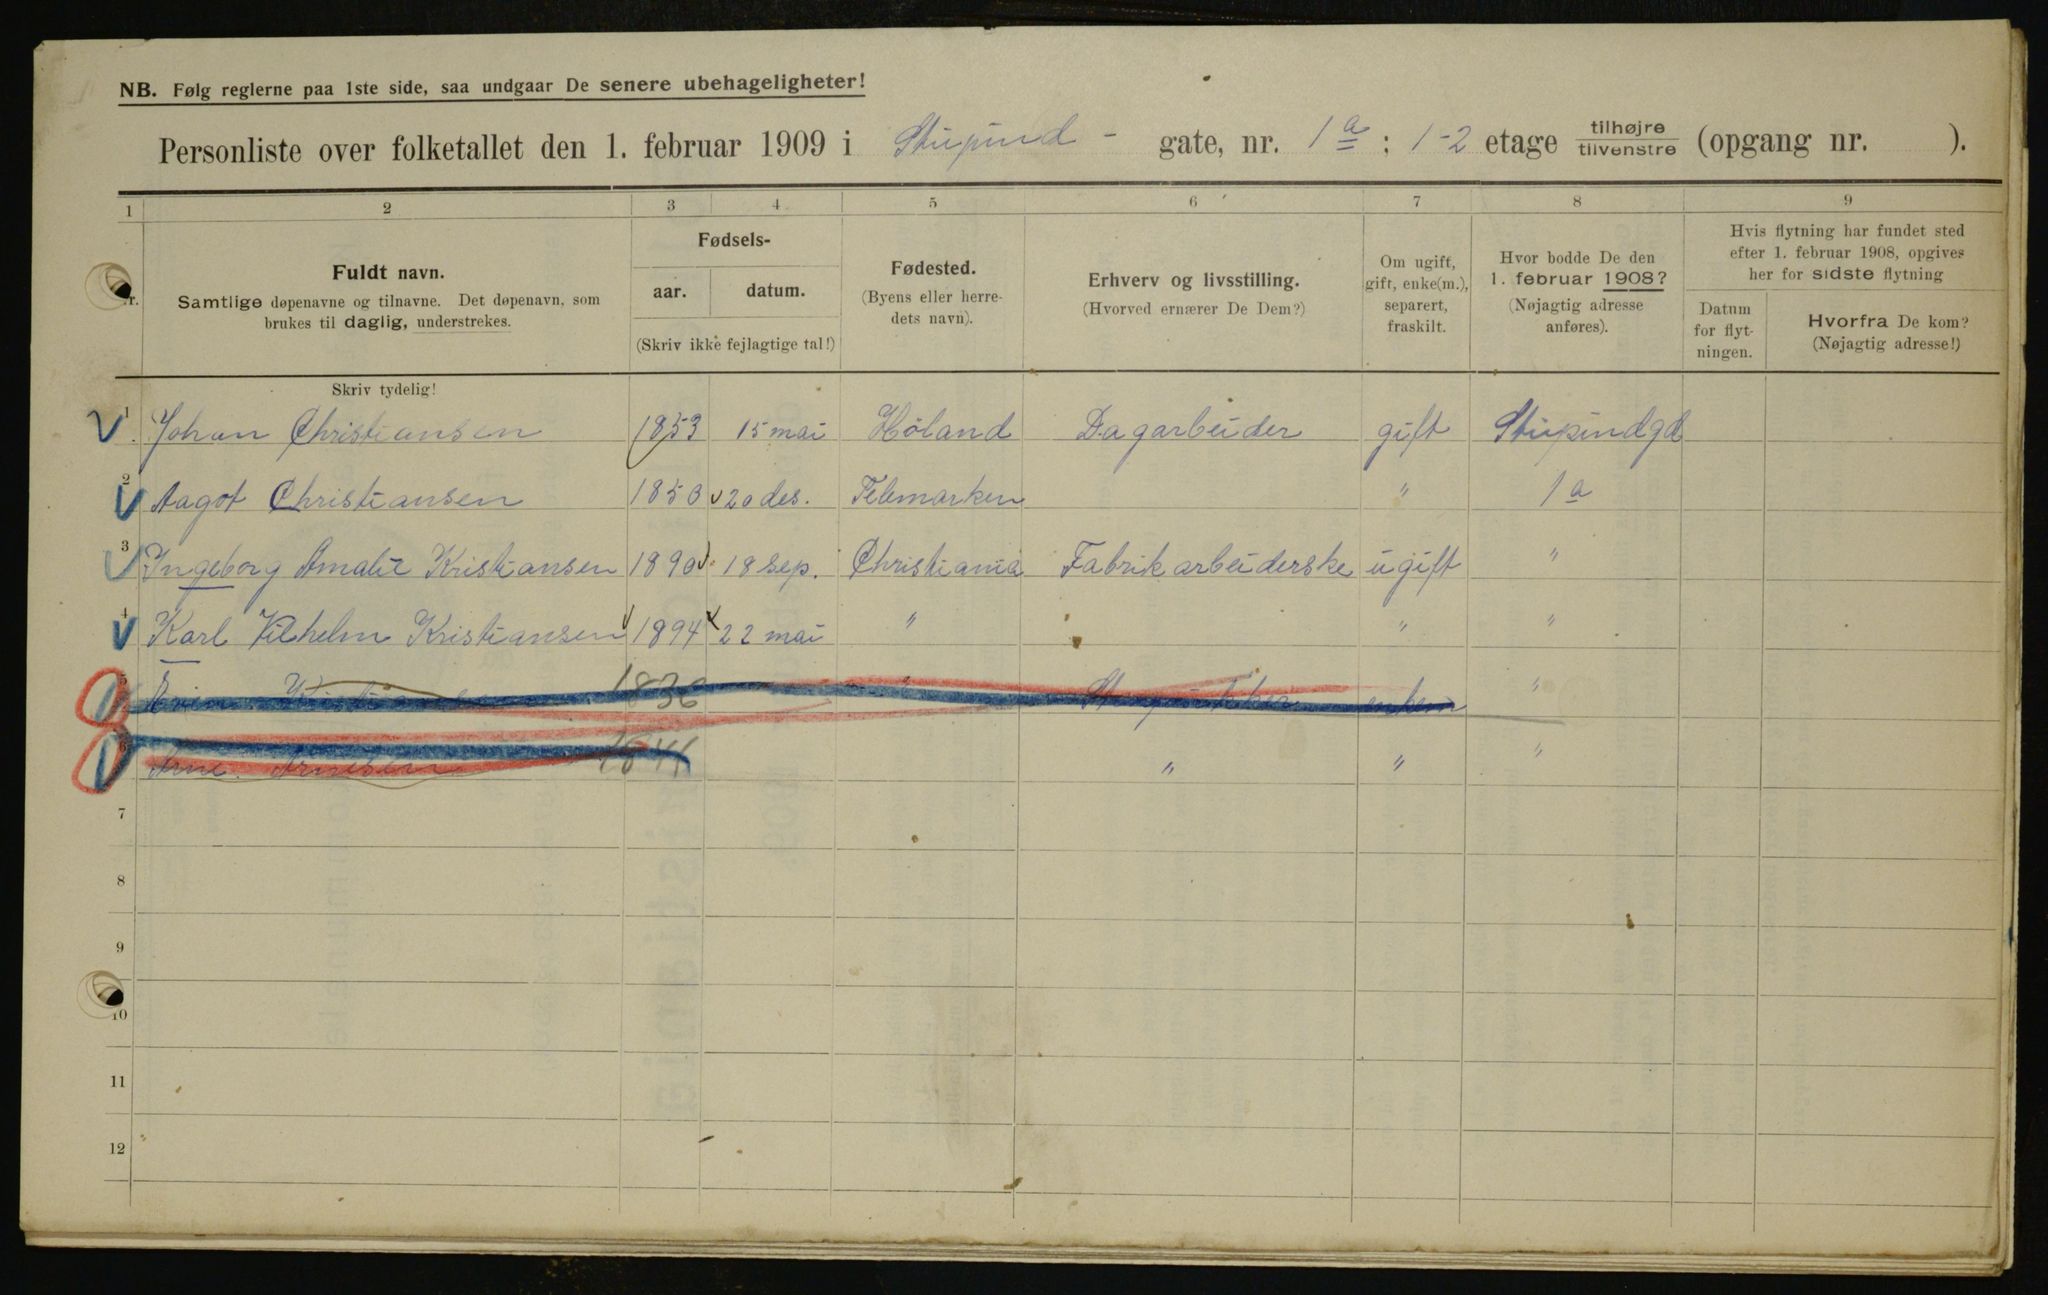 NB. Følg reglerne paa 1ste side, saa undgaar De senere ubehageligheter!
Personliste over folketallet den 1. februar 1909 i Stupind- gate, nr. 1a : 1-2 etage tilhøjre tilvenstre (opgang nr. ).
1 2 3 4 5 6 7 8 9
Nr.
Fuldt navn.
Samtlige døpenavne og tilnavne. Det døpenavn, som
brukes til daglig, understrekes.
Fødsels-
aar. datum.
(Skriv ikke fejlagtige tal!)
Fødested.
(Byens eller herre-
dets navn).
Erhverv og livsstilling.
(Hvorved ernærer De Dem?)
Om ugift,
gift, enke(m.),
separert,
fraskilt.
Hvor bodde De den
1. februar 1908?
(Nøjagtig adresse
anføres).
Hvis flytning har fundet sted
efter 1. februar 1908, opgives
her for sidste flytning
Datum
for flyt-
ningen.
Hvorfra De kom?
(Nøjagtig adresse!)
Skriv tydelig!
1 Johan Christiansen 1853 15 mai Høland Dagarbeider gift Stupindgd
2 Aagot Christiansen 1850 20 des. Telemarken " 1a
3 Ingeborg Amalie Kristiansen 1890 18 sep. Christiania Fabrikarbeiderske ugift "
4 Karl Vilhelm Kristiansen 1894 22 mai " " "
5 Kristiansen 1836 " enkem "
6 Arne Arnesen 1841 " " "
7
8
9
10
11
12